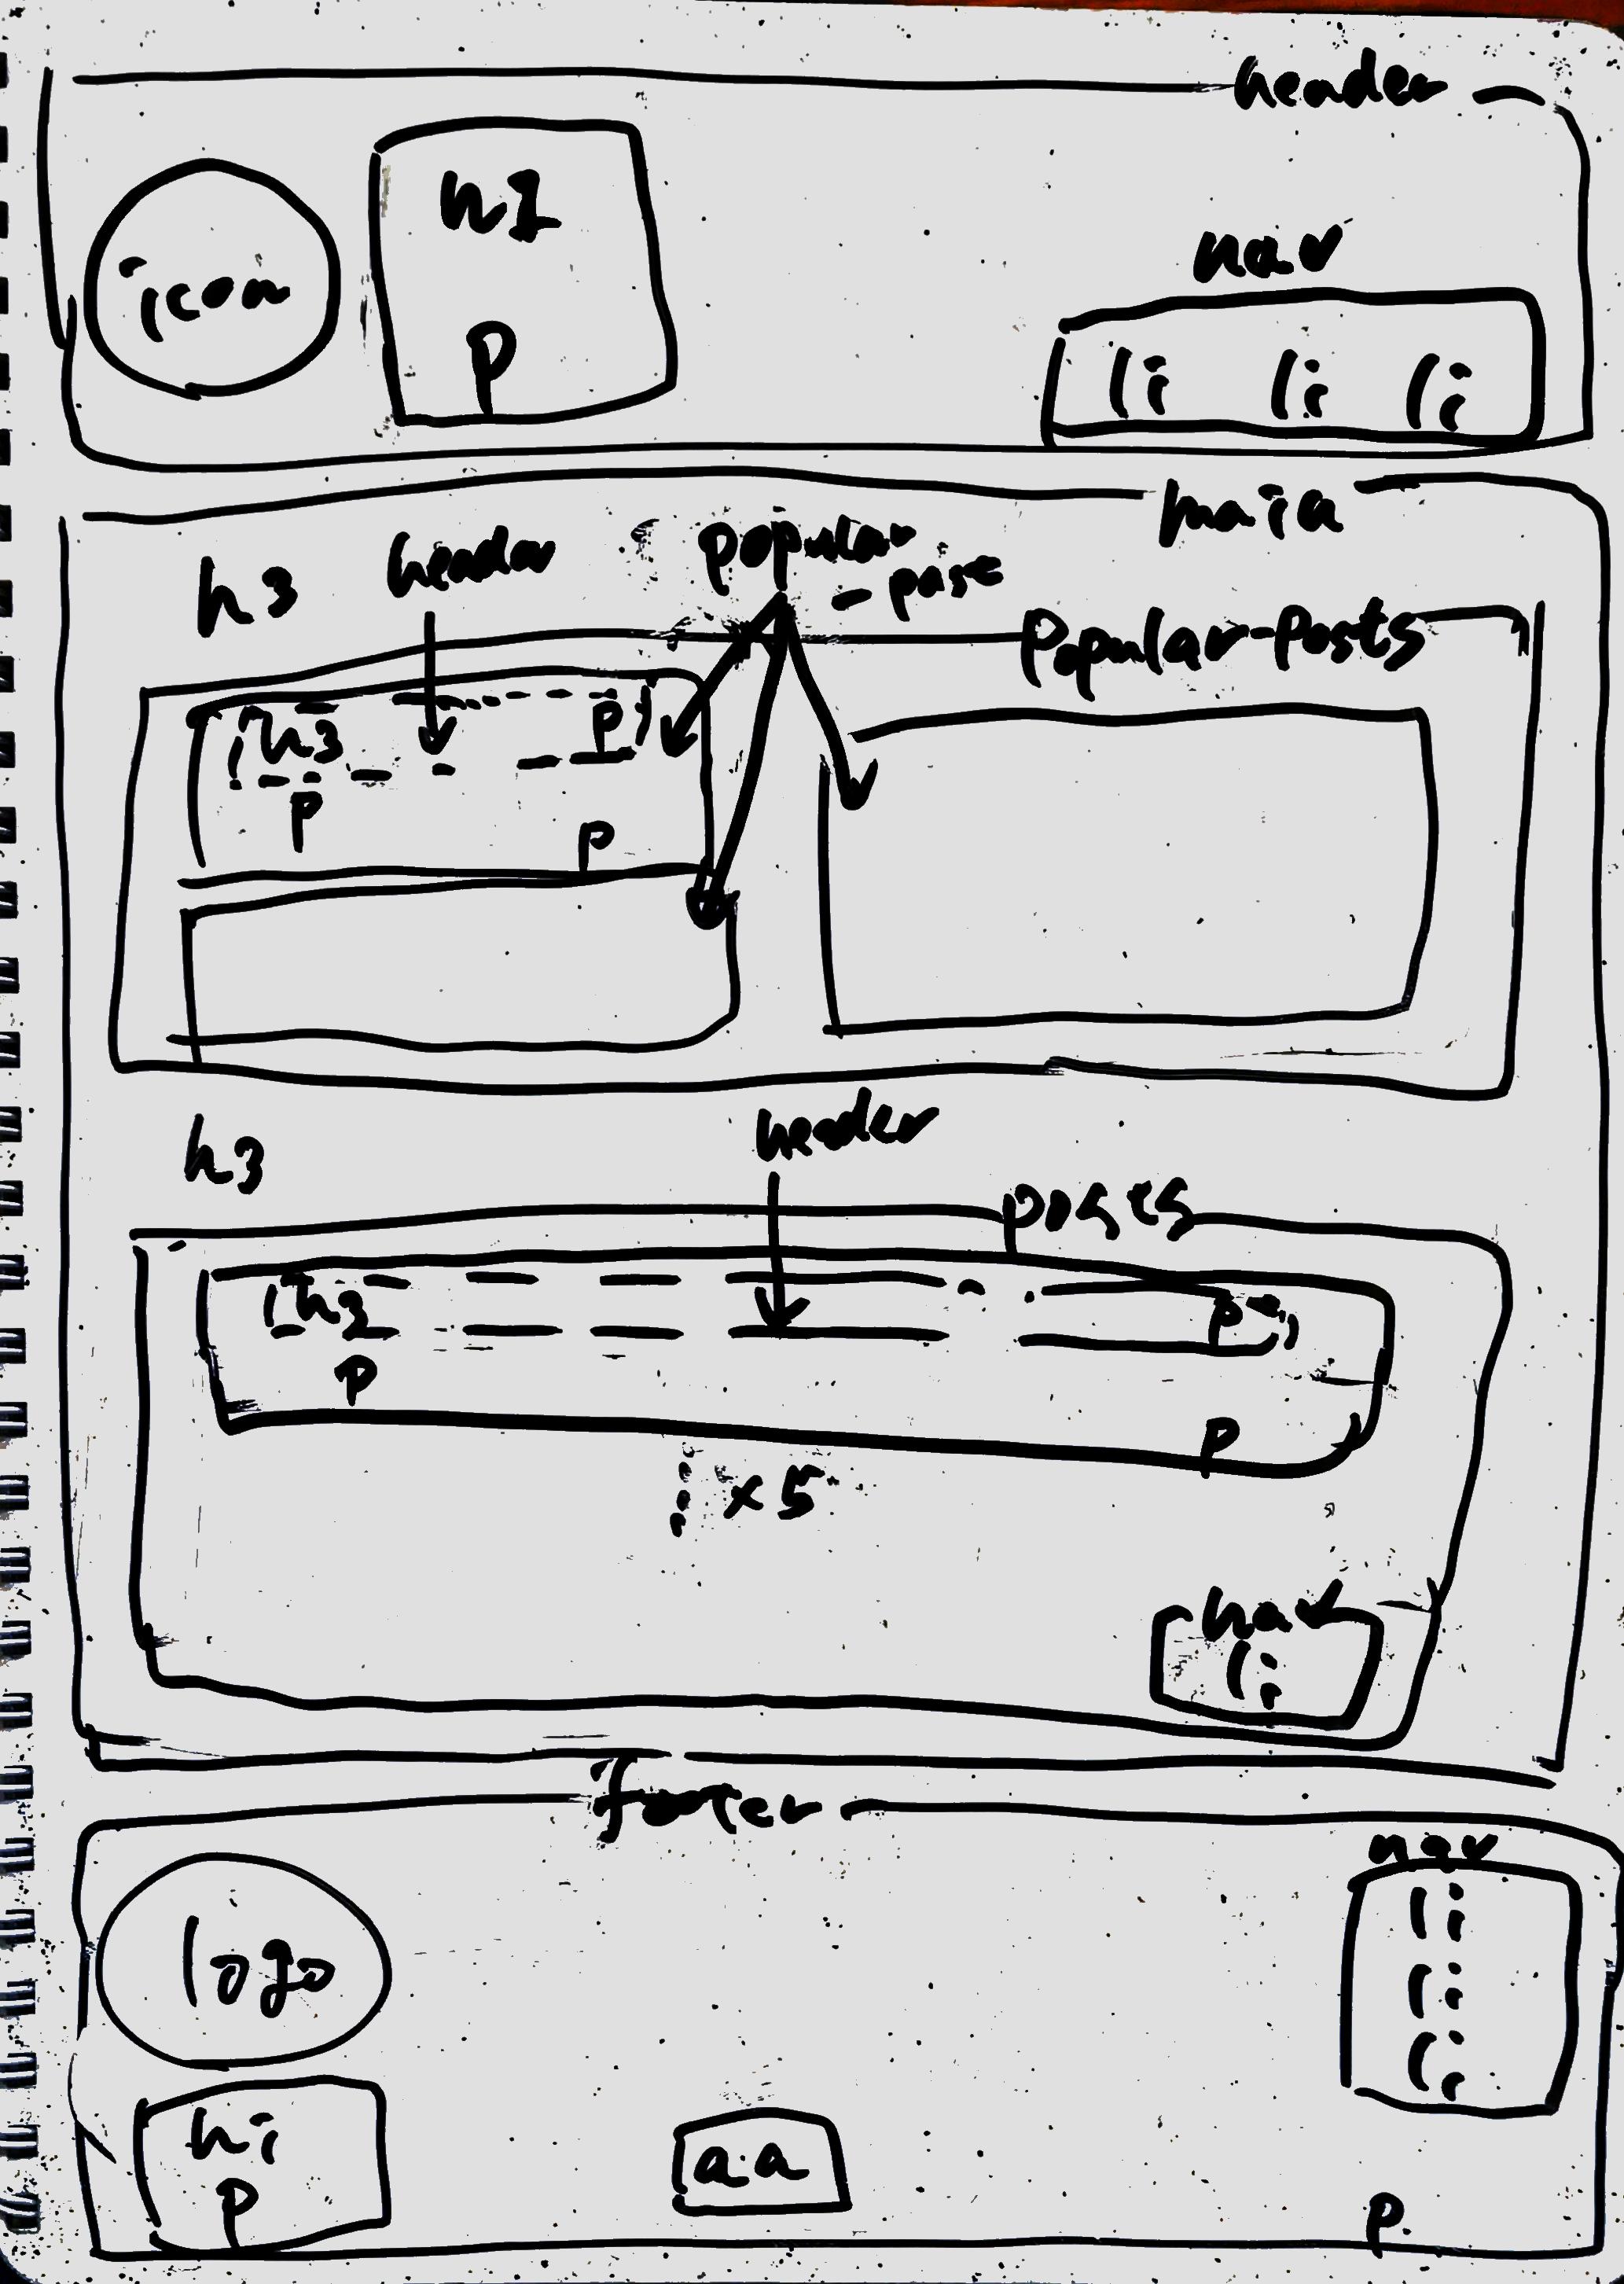 header
h1
icon
p
nav
li li li
main
h3
header
popular
-post
Popular-Posts
h3
p
p
p
h3
header
posts
h3
p
p
p
⋮ x5
nav
li
footer
logo
nav
li
li
li
h1
p
a a
p